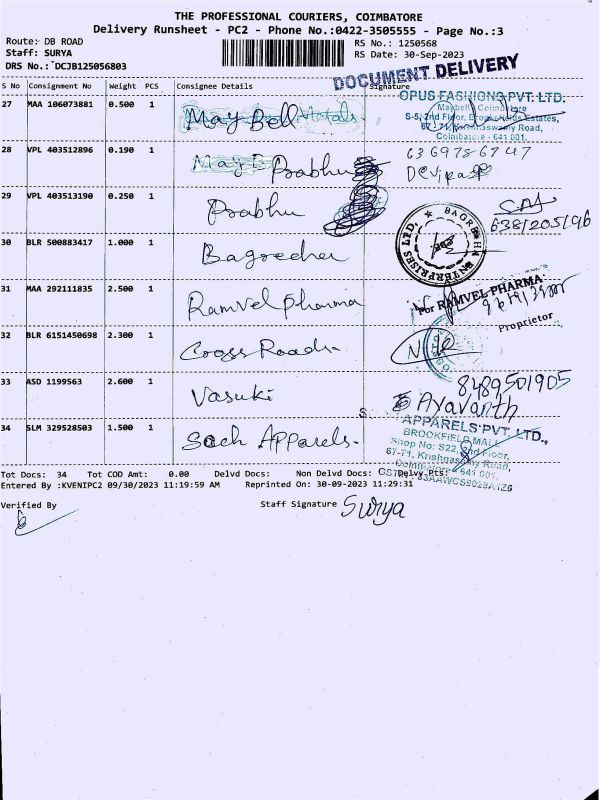 THE PROFESSIONAL COURIERS, COIMBATORE
Delivery Runsheet - PC2 - Phone No.:0422-3505555 - Page No.:3
Route: DB ROAD
RS No.: 1250568
Staff: SURYA
RS Date: 30-Sep-2023
DRS No.: DCJB125056803
DOCUMENT DELIVERY
S No Consignment No Weight PCS Consignee Details Signature
27 MAA 106073881 0.500 1 May Bell
OPUS FASHIONS PVT. LTD.
S-5, 2nd Floor, Brookfields Estates,
67-71, Krishnaswamy Road,
Coimbatore - 641 001.
28 VPL 403512896 0.190 1 Prabhu
6369786747
29 VPL 403513190 0.250 1 Prabhu
30 BLR 500883417 1.000 1 Bagrecha
BAGRECHA ENTERPRISES LTD.
31 MAA 292111835 2.500 1 Ramvel Pharma
For RAMVEL PHARMA
Proprietor
32 BLR 6151450698 2.300 1
33 ASD 1199563 2.600 1 Vasuki
8489501905
34 SLM 329528503 1.500 1 Soch Apparels.
APPARELS PVT. LTD.,
BROOKFIELD MALL
Shop No: S22, 2nd Floor,
67-71, Krishnasamy Road,
Coimbatore - 641 001.
Tot Docs: 34 Tot COD Amt: 0.00 Delvd Docs: Non Delvd Docs: Delvy Pts:
Entered By :KVENIPC2 09/30/2023 11:19:59 AM Reprinted On: 30-09-2023 11:29:31
Verified By
Staff Signature Surya